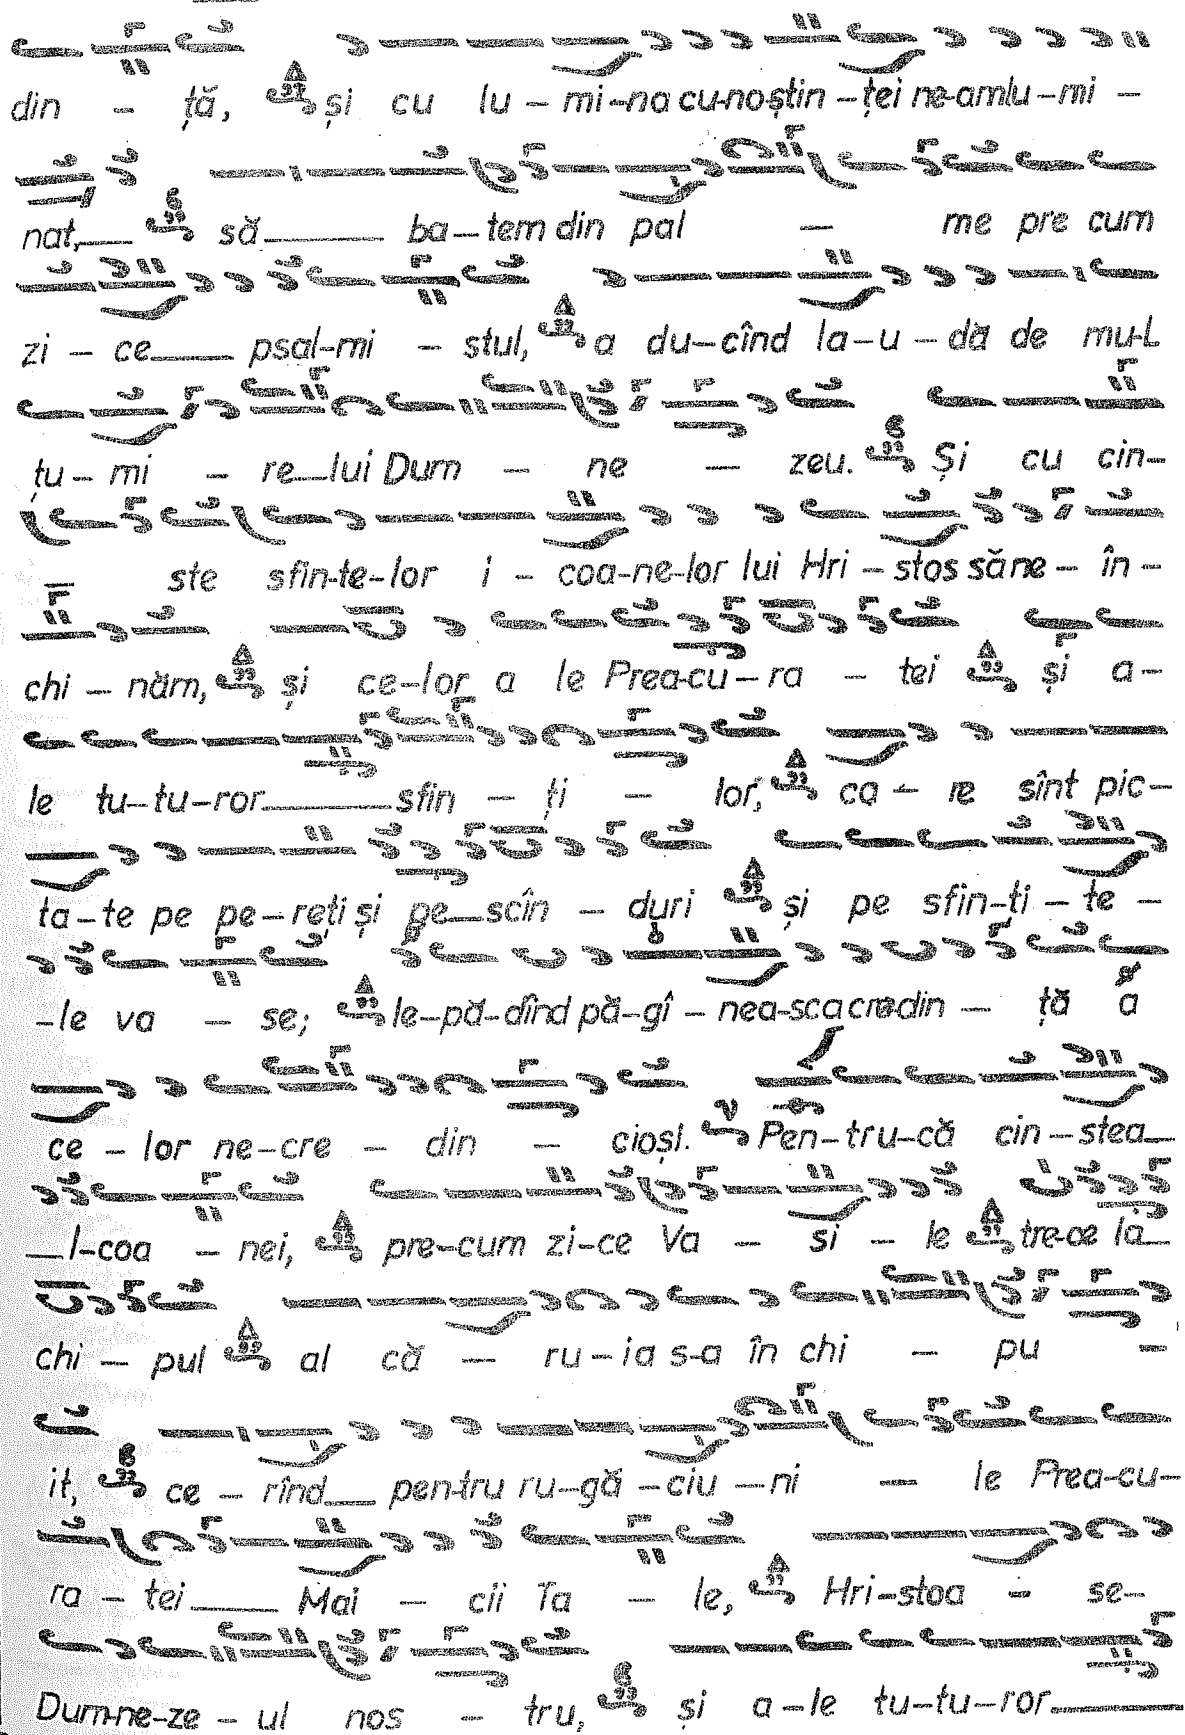 din – ță, și cu lu – mi–na cu-noștin – ței ne-am lu – mi –
nat, să ba – tem din pal – me pre cum
zi – ce psal-mi – stul, a du–cînd la–u – dă de mul
țu – mi – re lui Dum – ne – zeu. Și cu cin–
– ste sfin-te–lor i – coa–ne–lor lui Hri – stos să ne – în –
chi – năm, și ce–lor a le Prea-cu – ra – tei și a –
le tu–tu–ror sfin – ți – lor, ca – re sînt pic –
ta–te pe pe–reți și pe scîn – duri și pe sfin–ți – te –
–le va – se; le–pă–dînd pă–gî – nea-sca cre-din – ță a
ce – lor ne–cre – din – cioși. Pen–tru–că cin – stea
I–coa – nei, pre–cum zi–ce Va – si – le tre-ce la
chi – pul al că – ru–ia s-a în chi – pu –
it, ce – rînd pen-tru ru–gă – ciu – ni – le Prea–cu–
ra – tei Mai – cii Ta – le, Hri–stoa – se–
Dum-ne–ze – ul nos – tru, și a–le tu–tu–ror